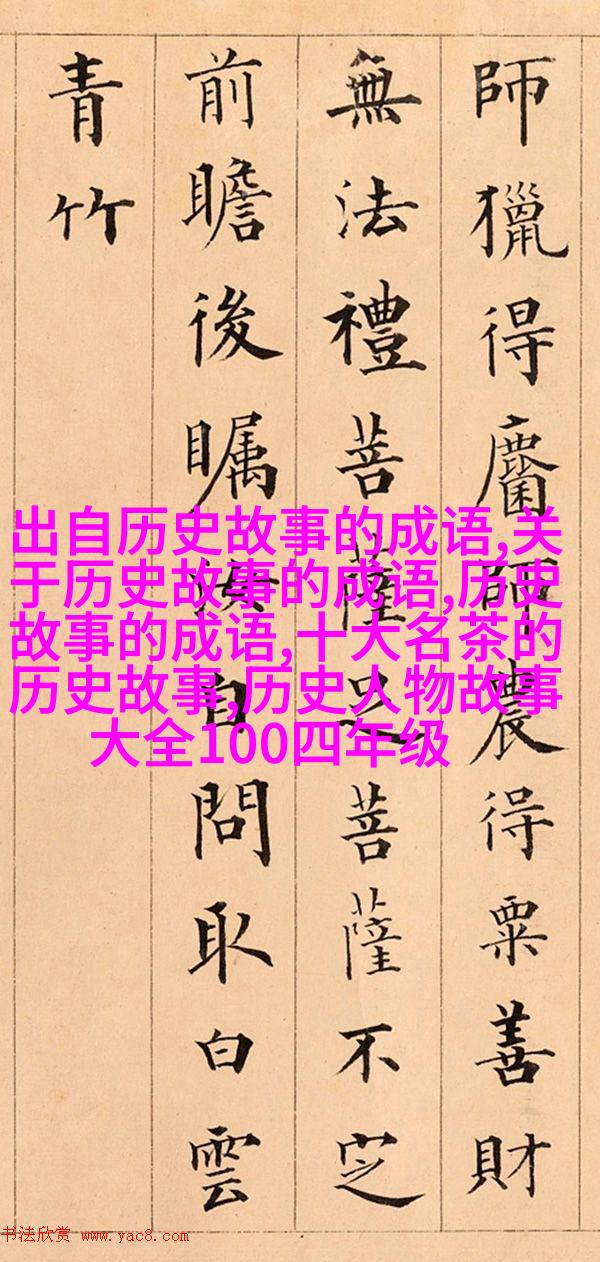 師獵得麕師農得粟善財
無法禮菩薩菩薩不定
前瞻後瞩自問取白雲
青竹
出自历史故事的成语,关
于历史故事的成语,历史
故事的成语,十大名茶的
历史故事,历史人物故事
大全100四年级
书法欣赏 www.yac8.com